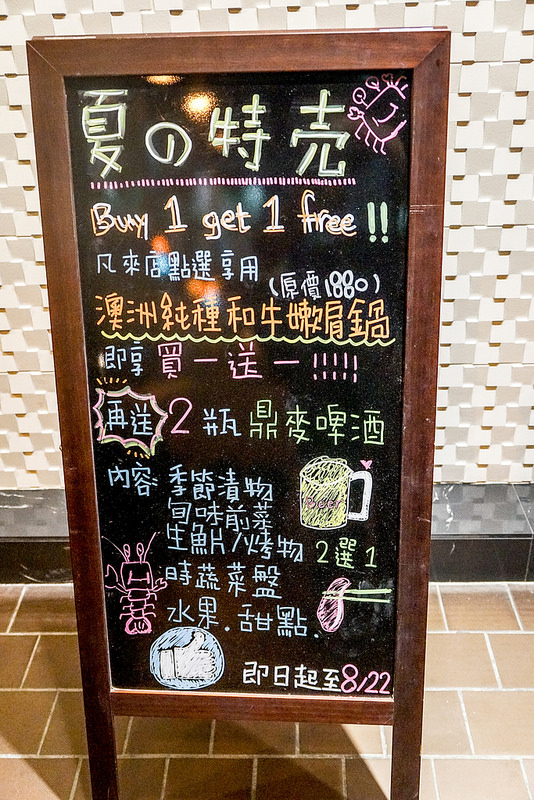 夏の特売
Buy 1 get 1 free !!
凡來店點選享用
(原價1880)
澳洲純種和牛嫩肩鍋
即享 買一送一 !!!!!
再送 2 瓶 鼎麥啤酒
內容 季節漬物
旬味前菜
生魚片/烤物 2選1
時蔬菜盤
水果.甜點.
Beer
即日起至8/22